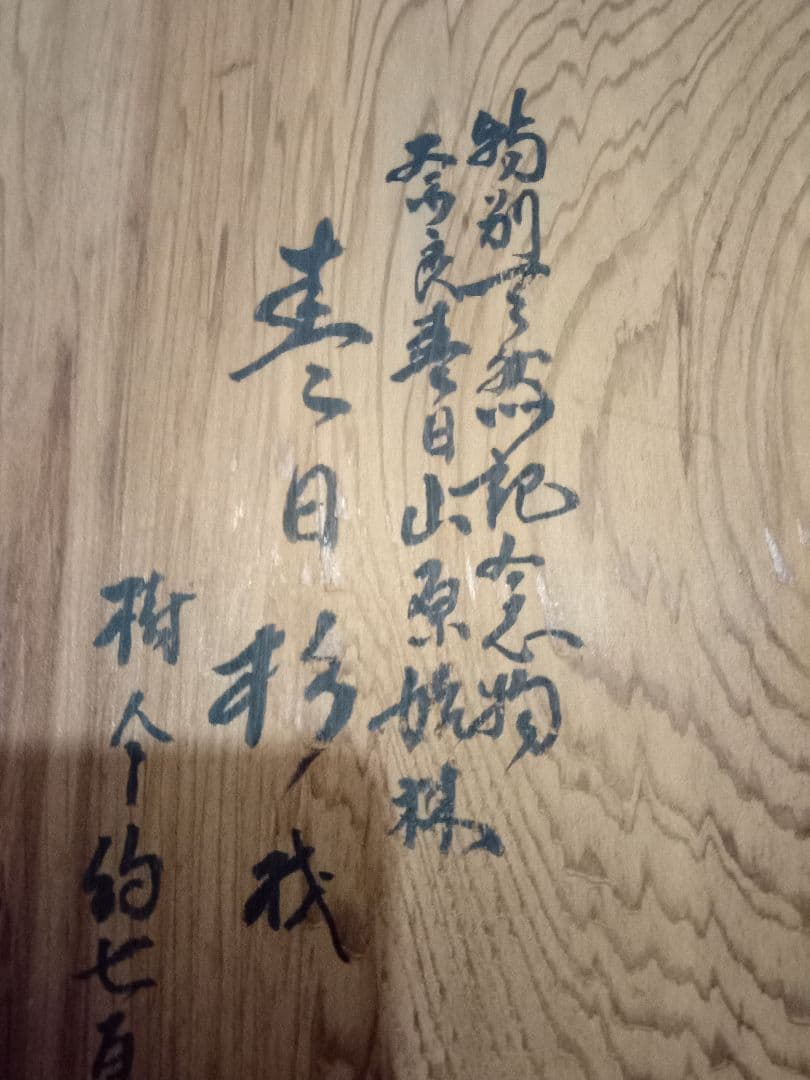 特別天然記念物
奈良春日山原始林
春日杉
樹令約七百